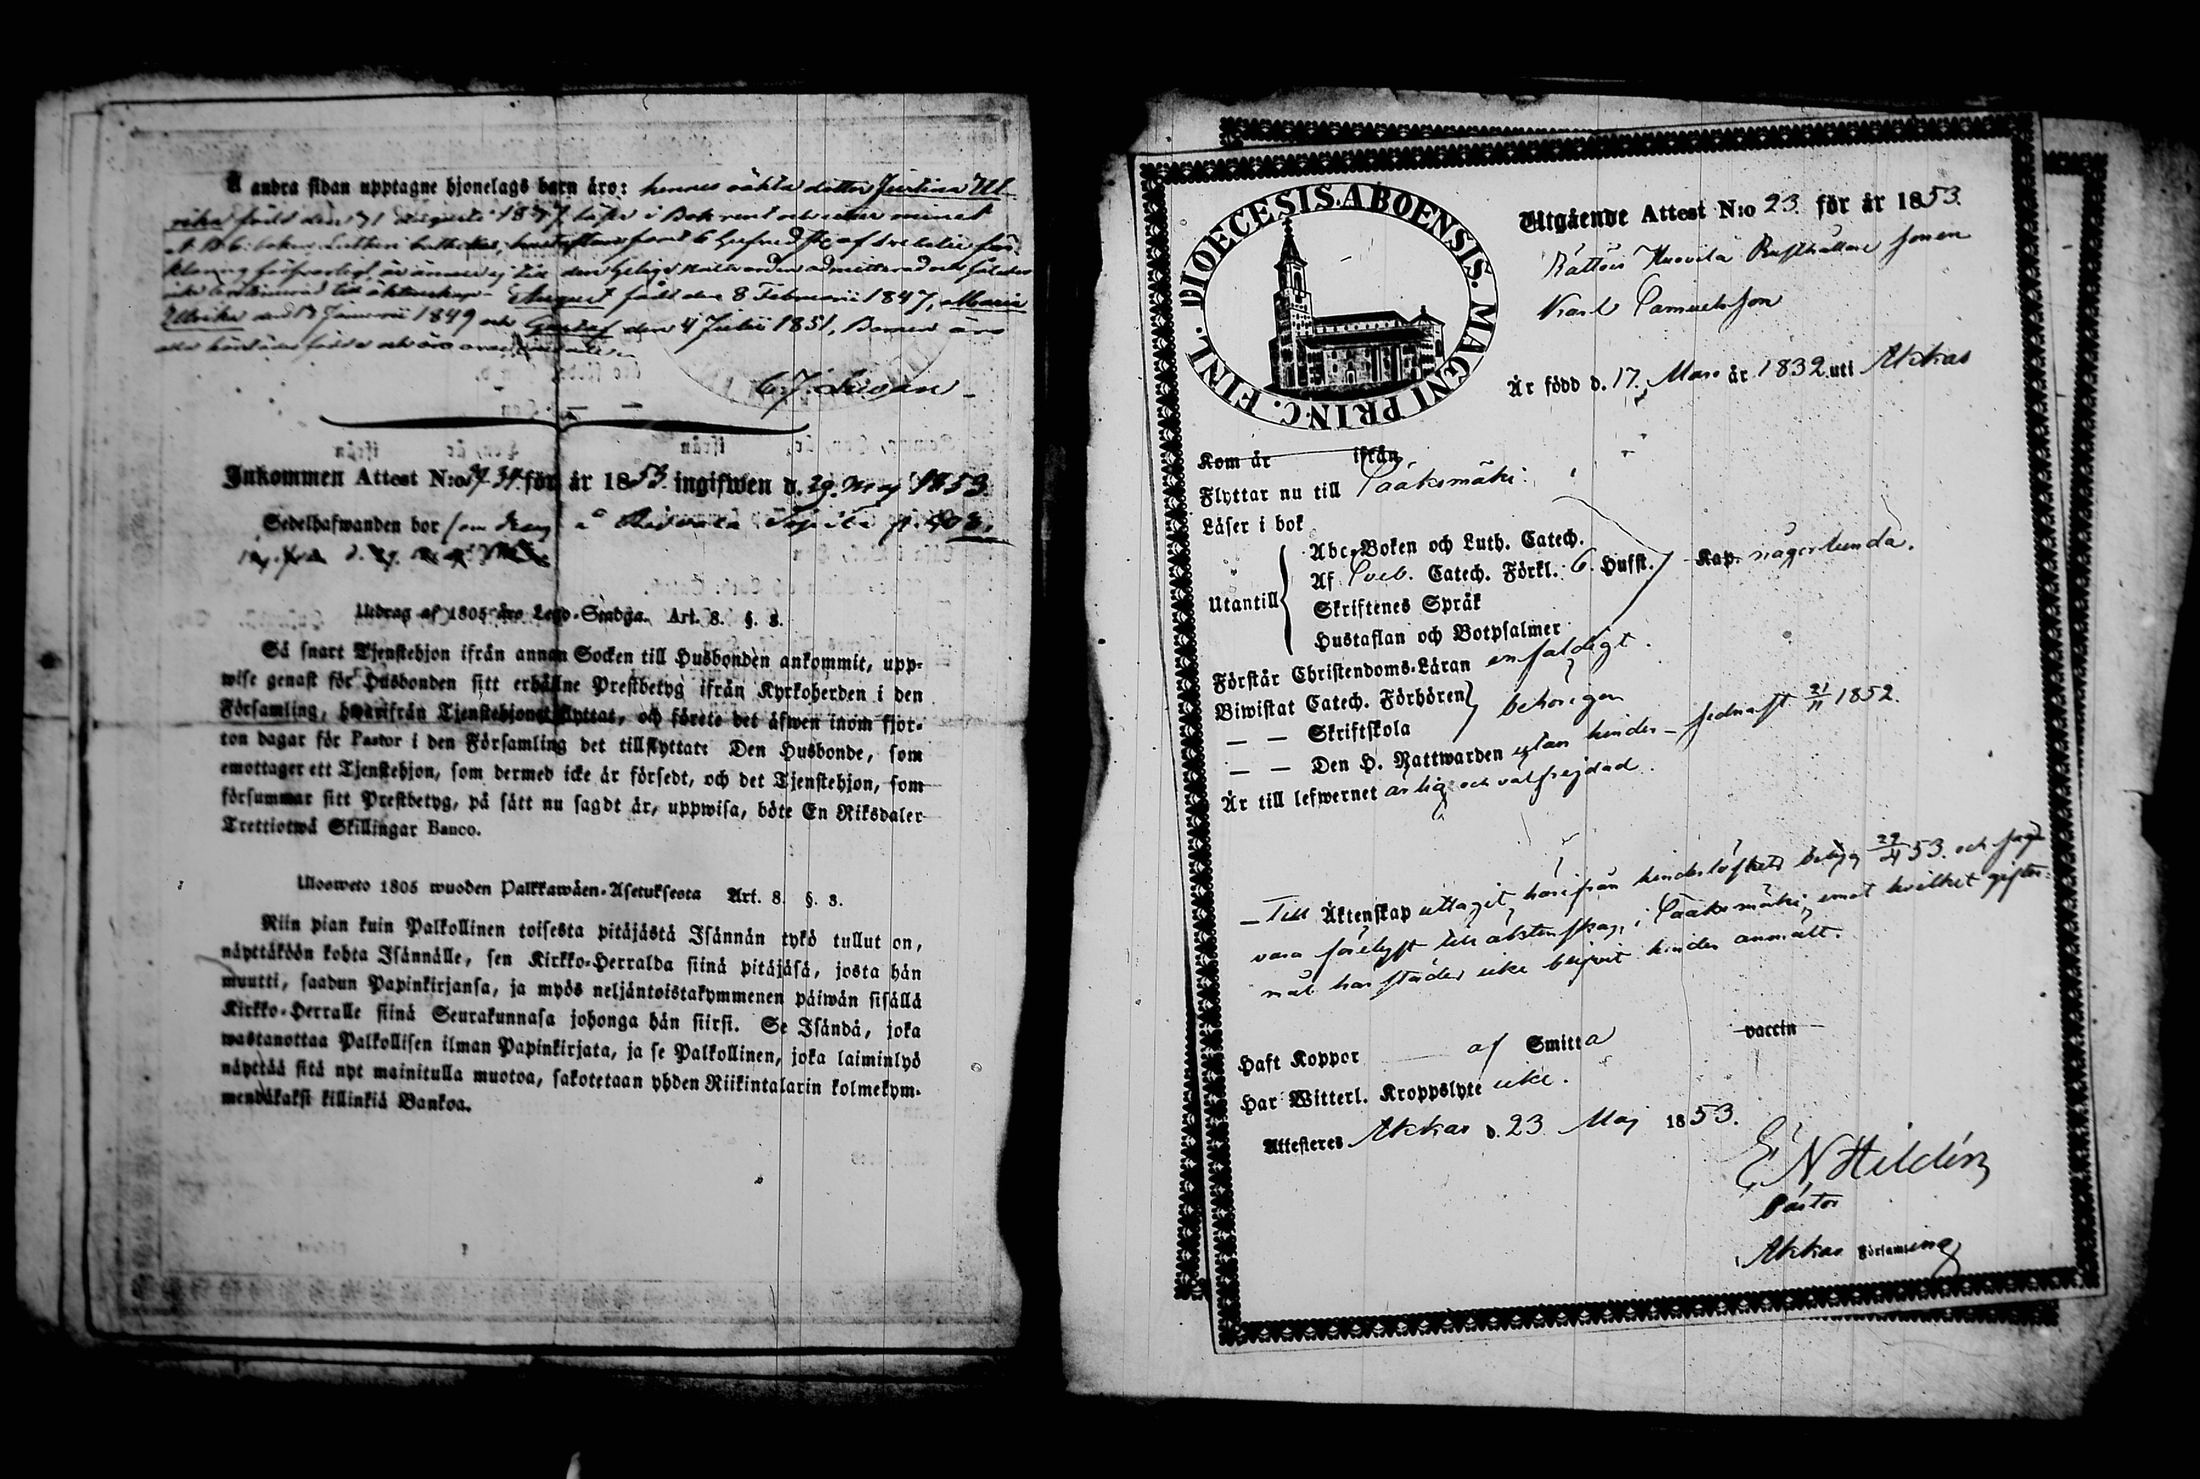 A andra sidan upptagne hjonelags barn äro: hennes äkta dotter Justina Ul-
rika född den 31 Augusti 1837, läser i Bok rent och utur minnet
A.B.C. boken Lutheri af för-
klaring är ännu ej till den Helige Nattvarden admitterad och
till äktenskap. August född den 8 Februarii 1847, Maria
Ulrika den 13 Januarii 1849 och Gustaf den 4 Julii 1851, Barnen äro
alla födde och äro
Inkommen Attest N:o 34 för år 1853 ingifwen d. 29 Maj 1853.
Sedelhafwanden bor som dräng å p. 408.
Utdrag af 1805 års Lego-Stadga. Art. 8. §. 3.
Så snart Tjenstehjon ifrån annan Socken till Husbonden ankommit, upp-
wise genast för Husbonden sitt erhållne Prestbetyg ifrån Kyrkoherden i den
Församling, hwarifrån Tjenstehjonet flyttat, och förete det äfwen inom fjor-
ton dagar för Pastor i den Församling det tillflyttat: Den Husbonde, som
emottager ett Tjenstehjon, som dermed icke är försedt, och det Tjenstehjon, som
försummar sitt Prestbetyg, på sätt nu sagdt är, uppwisa, böte En Riksdaler
Trettiotwå Skillingar Banco.
Ulosweto 1805 wuoden Palkkawäen-Asetuksesta Art. 8. §. 3.
Niin pian kuin Palkollinen toisesta pitäjästä Isännän tykö tullut on,
näyttäköön kohta Isännälle, sen Kirkko-Herralda siinä pitäjäsä, josta hän
muutti, saadun Papinkirjansa, ja myös neljäntoistakymmenen päiwän sisällä
Kirkko-Herralle siinä Seurakunnasa johonga hän siirsi. Se Isändä, joka
wastanottaa Palkollisen ilman Papinkirjata, ja se Palkollinen, joka laiminlyö
näyttää sitä nyt mainitulla muotoa, sakotetaan yhden Riikintalarin kolmekym-
mendäkaksi killinkiä Bankoa.
DIOECESIS. ABOENSIS. MAGNI PRINC. FINL.
Utgående Attest N:o 23 för år 1853.
Rättöis Huovila Rusthållare sonen
Karl Samuelsson
Är född d. 17 Mars år 1832 uti Akkas
Kom år ifrån
Flyttar nu till Sääksmäki.
Läser i bok
Abc-Boken och Luth. Catech.
Af Sveb. Catech. Förkl. 6. Hufst. Kap. någorlunda.
Utantill
Skriftenes Språk
Hustaflan och Botpsalmer
Förstår Christendoms-Läran enfaldigt.
Biwistat Catech. Förhören
— — Skriftskola behörigen
— — Den H. Nattwarden utan hinder - sednast 21/11 1852.
Är till lefwernet ärlig och välfrejdad.
— Till Äktenskap uttagit härifrån hinderlöshets betyg 29/4 53. och säges
vara förelyst till äktenskap i Sääksmäki, emot hvilket gifter-
mål härstädes icke blifvit hinder anmäldt.
Haft Koppor af Smitta vaccin
Har Witterl. Kroppslyte icke.
Attesteres Akkas d. 23 Maj 1853.
E N Hildén
Pastor
i Akkas Församling